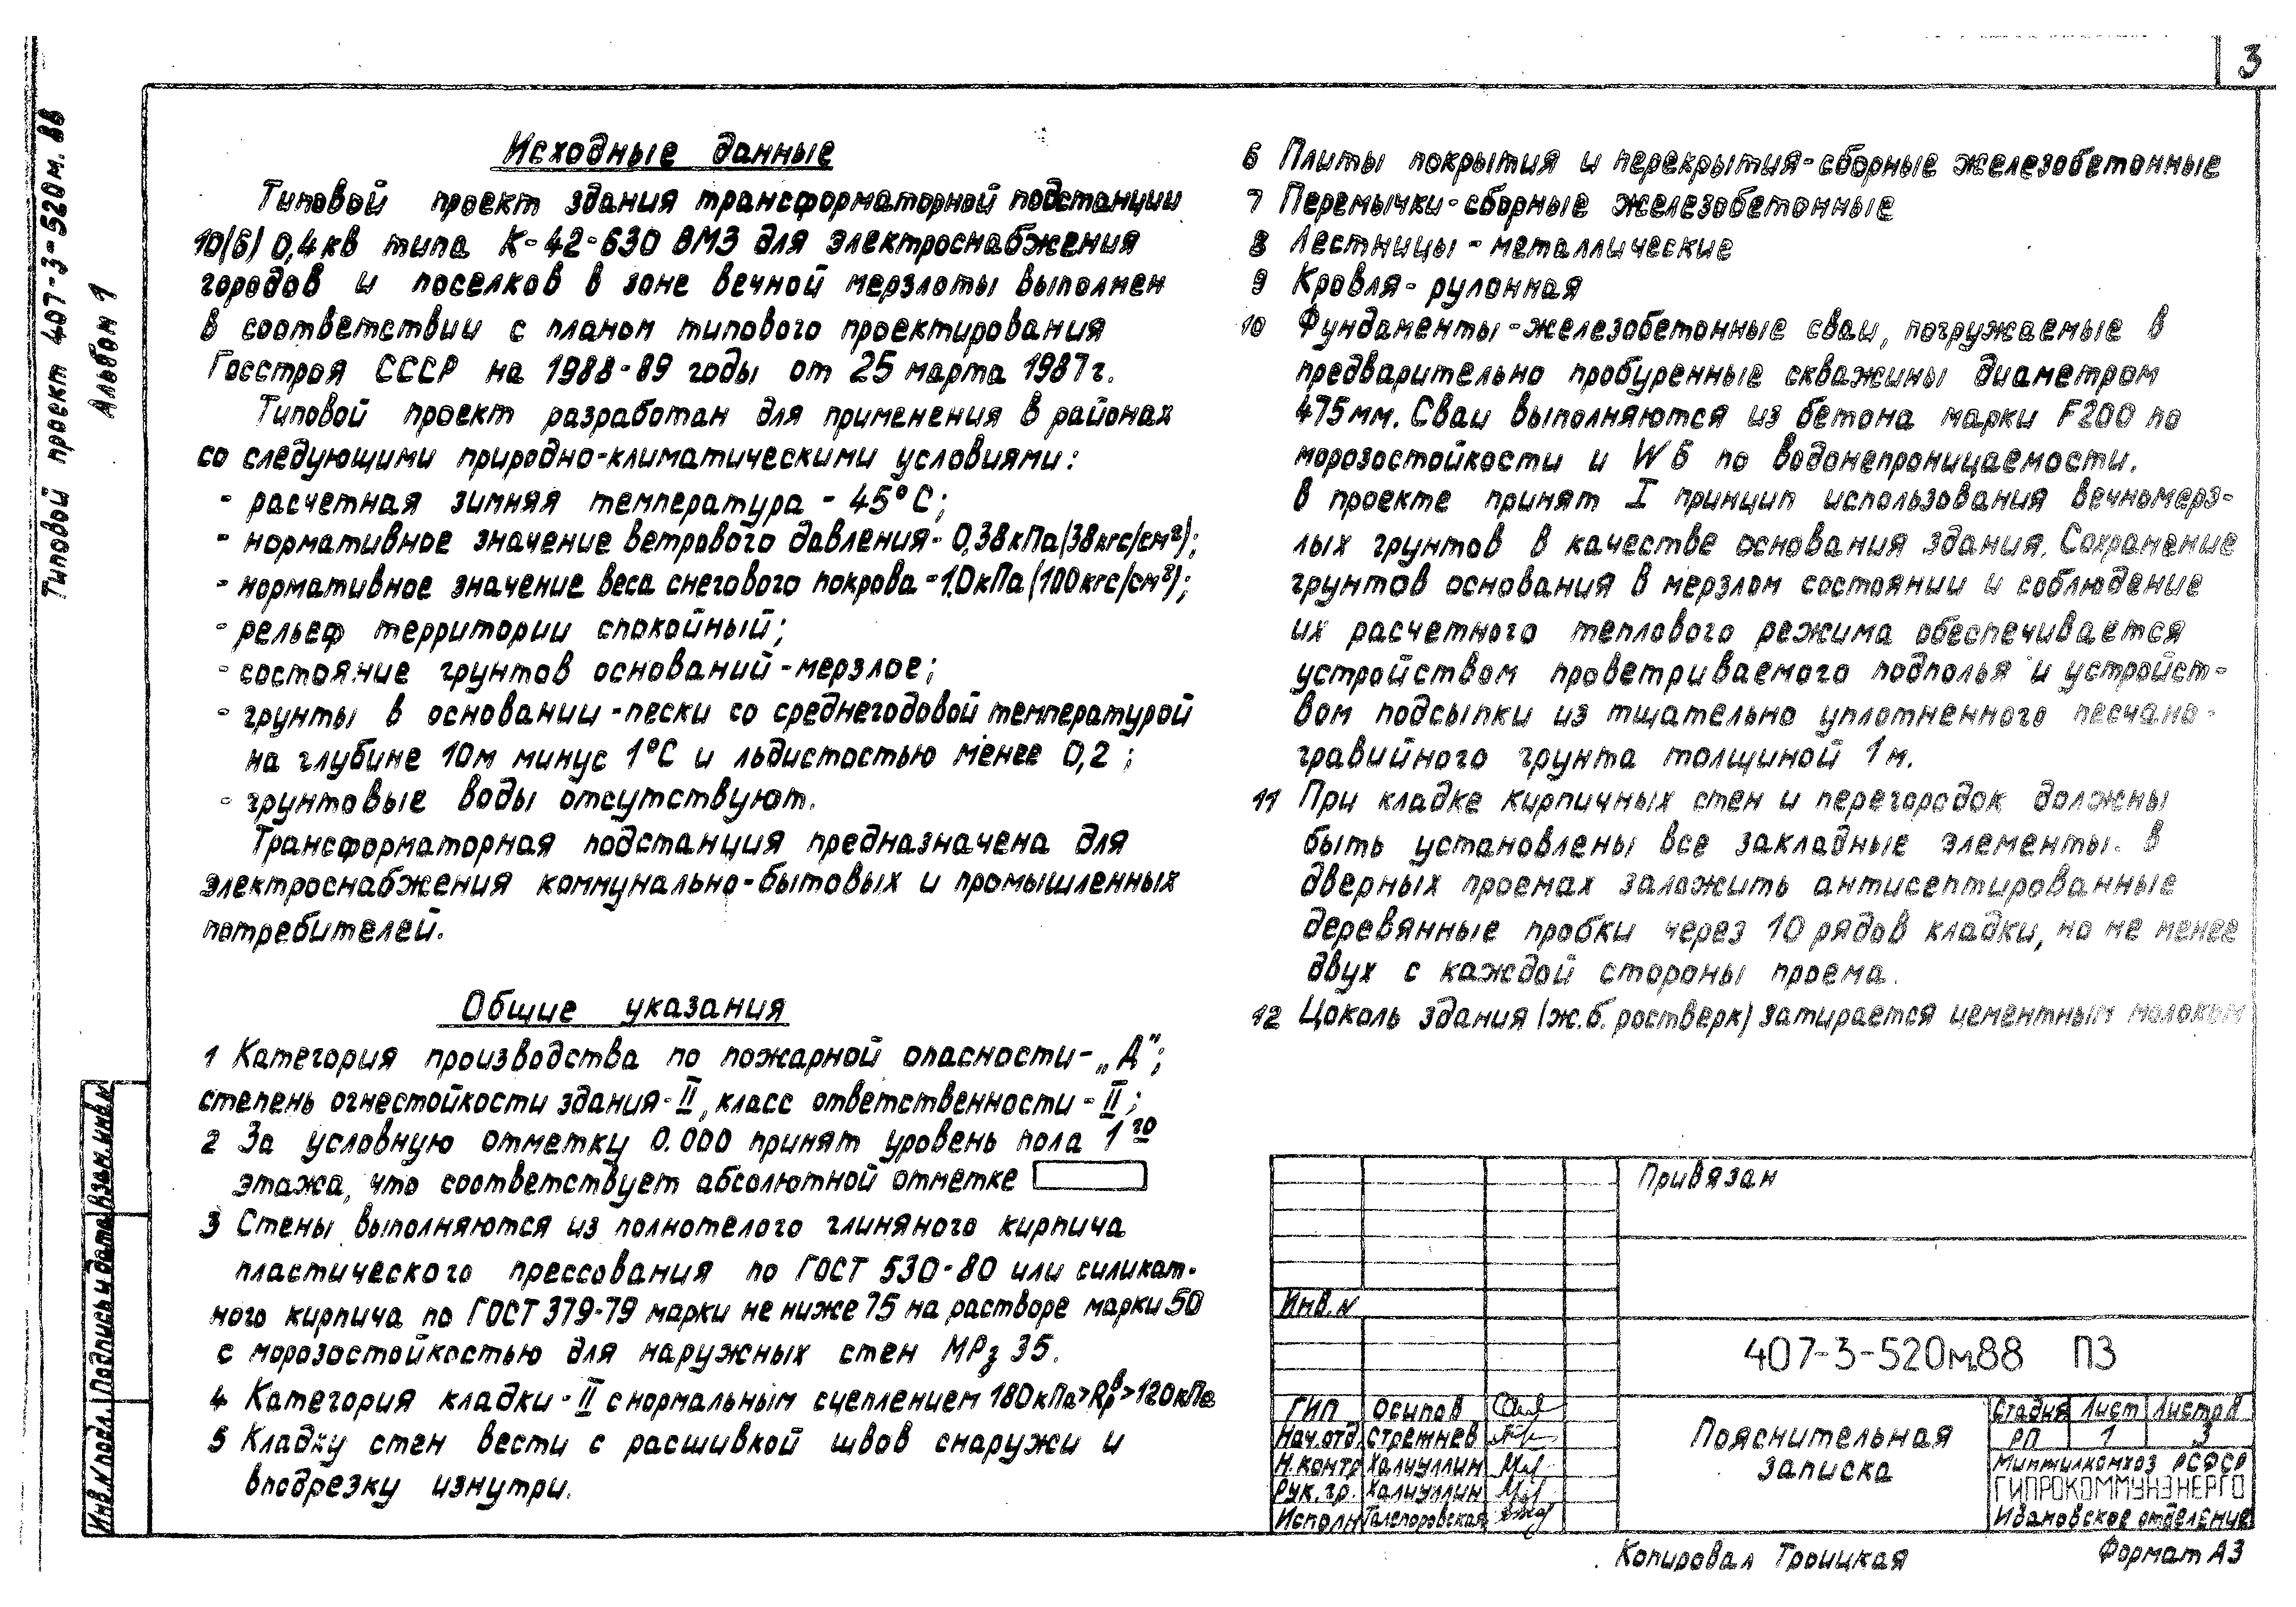 3
Типовой проект 407-3-520м.88
Альбом 1
Исходные данные
Типовой проект здания трансформаторной подстанции
10(6) 0,4кв типа К-42-630 ВМЗ для электроснабжения
городов и поселков в зоне вечной мерзлоты выполнен
в соответствии с планом типового проектирования
Госстроя СССР на 1988-89 годы от 25 марта 1987г.
Типовой проект разработан для применения в районах
со следующими природно-климатическими условиями:
- расчетная зимняя температура - 45°С;
- нормативное значение ветрового давления - 0,38кПа(38кгс/см²);
- нормативное значение веса снегового покрова - 1.0кПа(100кгс/см²);
- рельеф территории спокойный;
- состояние грунтов оснований - мерзлое;
- грунты в основании - пески со среднегодовой температурой
на глубине 10м минус 1°С и льдистостью менее 0,2;
- грунтовые воды отсутствуют.
Трансформаторная подстанция предназначена для
электроснабжения коммунально-бытовых и промышленных
потребителей.
Общие указания
1 Категория производства по пожарной опасности - „Д";
степень огнестойкости здания - II, класс ответственности - II;
2 За условную отметку 0.000 принят уровень пола 1го
этажа, что соответствует абсолютной отметке
3 Стены выполняются из полнотелого глиняного кирпича
пластического прессования по ГОСТ 530-80 или силикат-
ного кирпича по ГОСТ 379-79 марки не ниже 75 на растворе марки 50
с морозостойкостью для наружных стен МРз 35.
4 Категория кладки - II с нормальным сцеплением 180кПа>Rрᵇ>120кПа
5 Кладку стен вести с расшивкой швов снаружи и
вподрезку изнутри.
6 Плиты покрытия и перекрытия - сборные железобетонные
7 Перемычки - сборные железобетонные
8 Лестницы - металлические
9 Кровля - рулонная
10 Фундаменты - железобетонные сваи, погружаемые в
предварительно пробуренные скважины диаметром
475мм. Сваи выполняются из бетона марки F200 по
морозостойкости и W6 по водонепроницаемости.
В проекте принят I принцип использования вечномерз-
лых грунтов в качестве основания здания. Сохранение
грунтов основания в мерзлом состоянии и соблюдение
их расчетного теплового режима обеспечивается
устройством проветриваемого подполья и устройст-
вом подсыпки из тщательно уплотненного песчано-
гравийного грунта толщиной 1м.
11 При кладке кирпичных стен и перегородок должны
быть установлены все закладные элементы. В
дверных проемах заложить антисептированные
деревянные пробки через 10 рядов кладки, но не менее
двух с каждой стороны проема.
12 Цоколь здания (ж.б. ростверк) затирается цементным молоком
Привязан
Инв.N
407-3-520м88 ПЗ
ГИП Осипов
Нач.отд. Стрежнев
Н.контр Халиуллин
Рук.гр. Халиуллин
Исполн
Пояснительная
записка
Стадия Лист Листов
РП 1 3
Минжилкомхоз РСФСР
ГИПРОКОММУНЭНЕРГО
Ивановское отделение
Инв.N подл. Подпись и дата Взам.инв.N
Копировал Троицкая
Формат А3